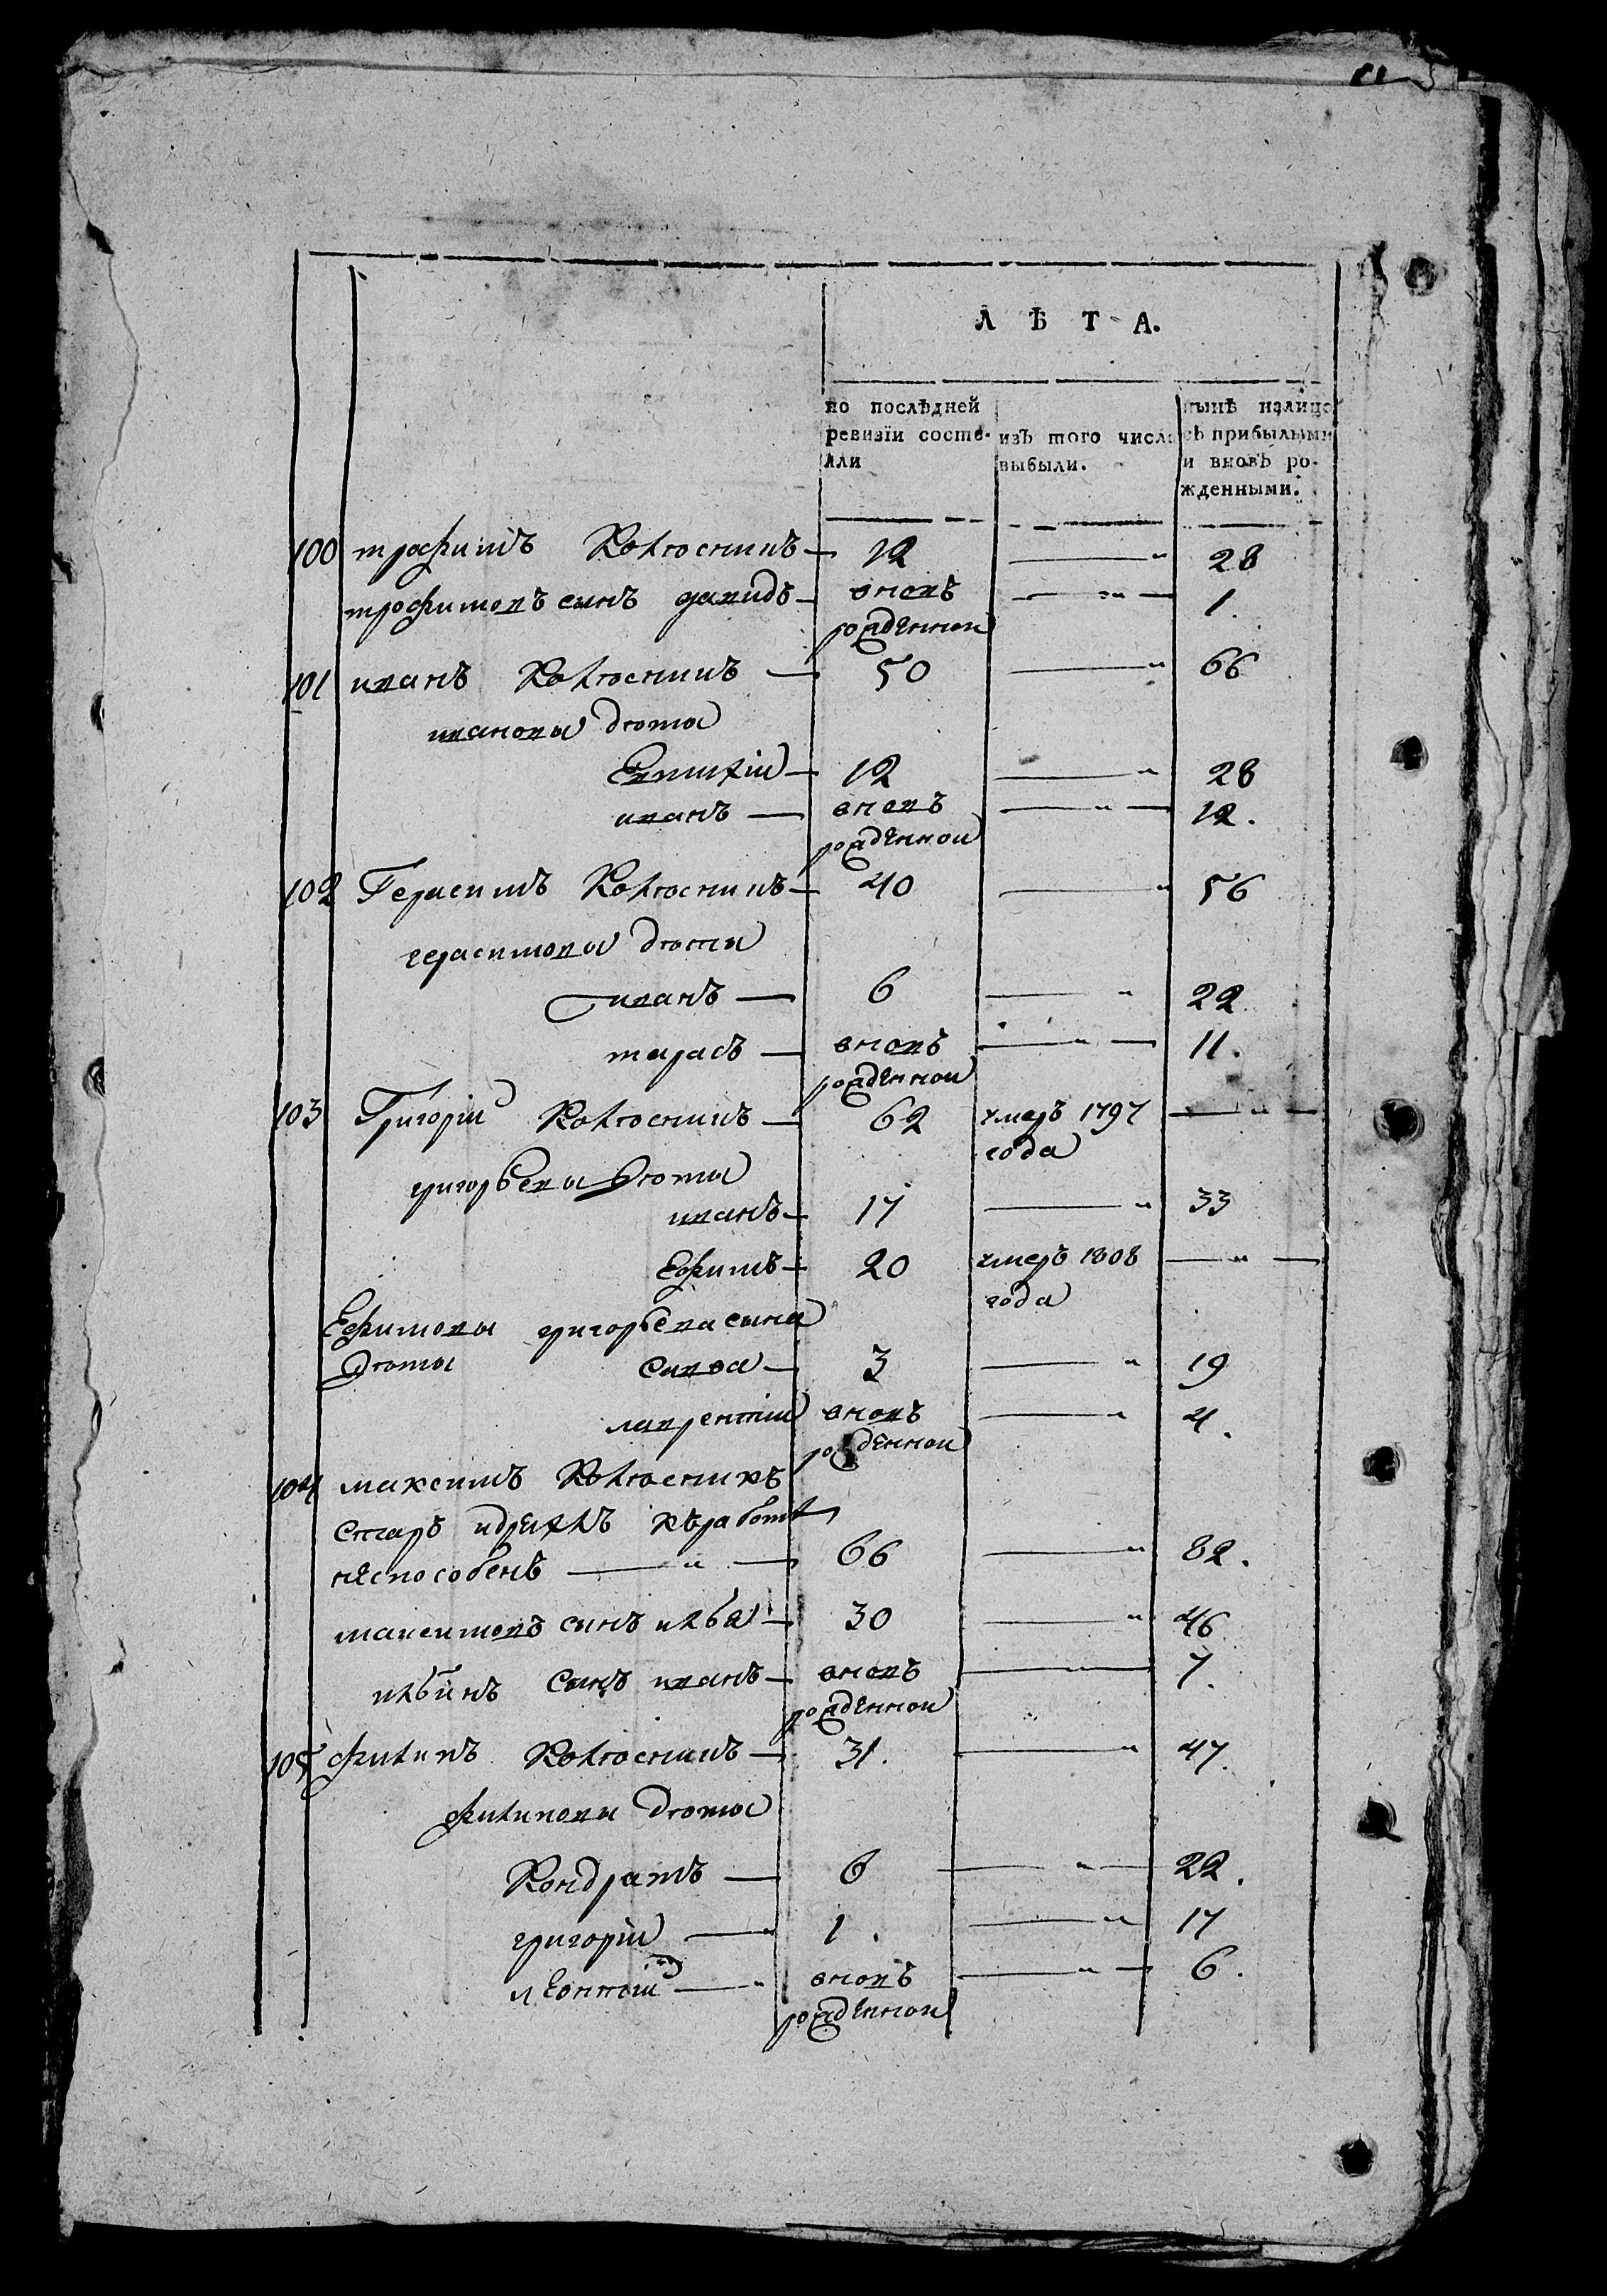 Л Ѣ Т А.
по послѣдней ревизіи состояли
изъ того числа выбыли.
нынѣ налицо съ прибылыми и вновь рожденными.
100 трофимъ Колюснинъ — 12 — " 28
трофимовъ сынъ давидъ — вновь — " — 1.
рожденной
101 иванъ Колюснинъ — 50 — " 66
ивановы дѣти
Евтифій — 12 — " 28
иванъ — вновь — " — 12.
рожденной
102 Герасимъ Колюснинъ — 40 — " 56
герасимовы дѣти
иванъ — 6 — " 22
тарасъ — вновь — " — 11.
рожденной
103 Григорій Колюснинъ — 62 умеръ 1797 — " —
года
григорьевы дѣти
иванъ — 17 — " 33
Ефимъ — 20 умеръ 1808 — " —
года
Ефимовы григорьева сына
дѣти савва — 3 — " 19
лаврентій вновь — " 4.
рожденной
104 максимъ Колюснинъ
старъ идряхлъ кѣработѣ
неспособенъ — " — 66 — " 82.
максимовъ сынъ илья — 30 — " 46
ильинъ сынъ иванъ — вновь — " — 7.
рожденной
105 филипъ Колюснинъ — 31. — " 47.
филиповы дѣти
Кондратъ — 6 — " — 22.
григорій — 1. — " 17
леонтій — " вновь — " — 6.
рожденной